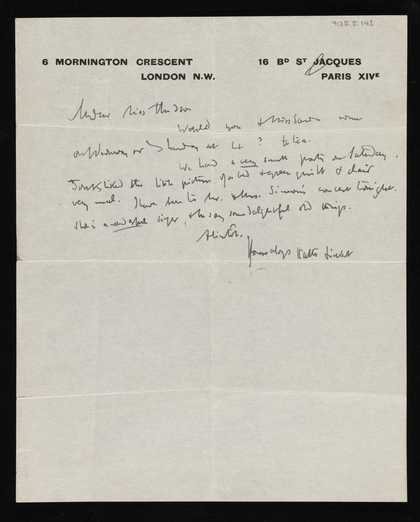 6 MORNINGTON CRESCENT
LONDON N.W.
16 BD ST JACQUES
PARIS XIVE
Miss Hudson
Would you & Miss
or Thursday at 4 ? to tea.
We had a very small party on Saturday.
I liked the little picture of red & green quilt & chair
very much. I have been to Mr. & Mrs. concert tonight.
She is a wonderful singer, & she sang some delightful old songs.
Yours always Walter Sickert